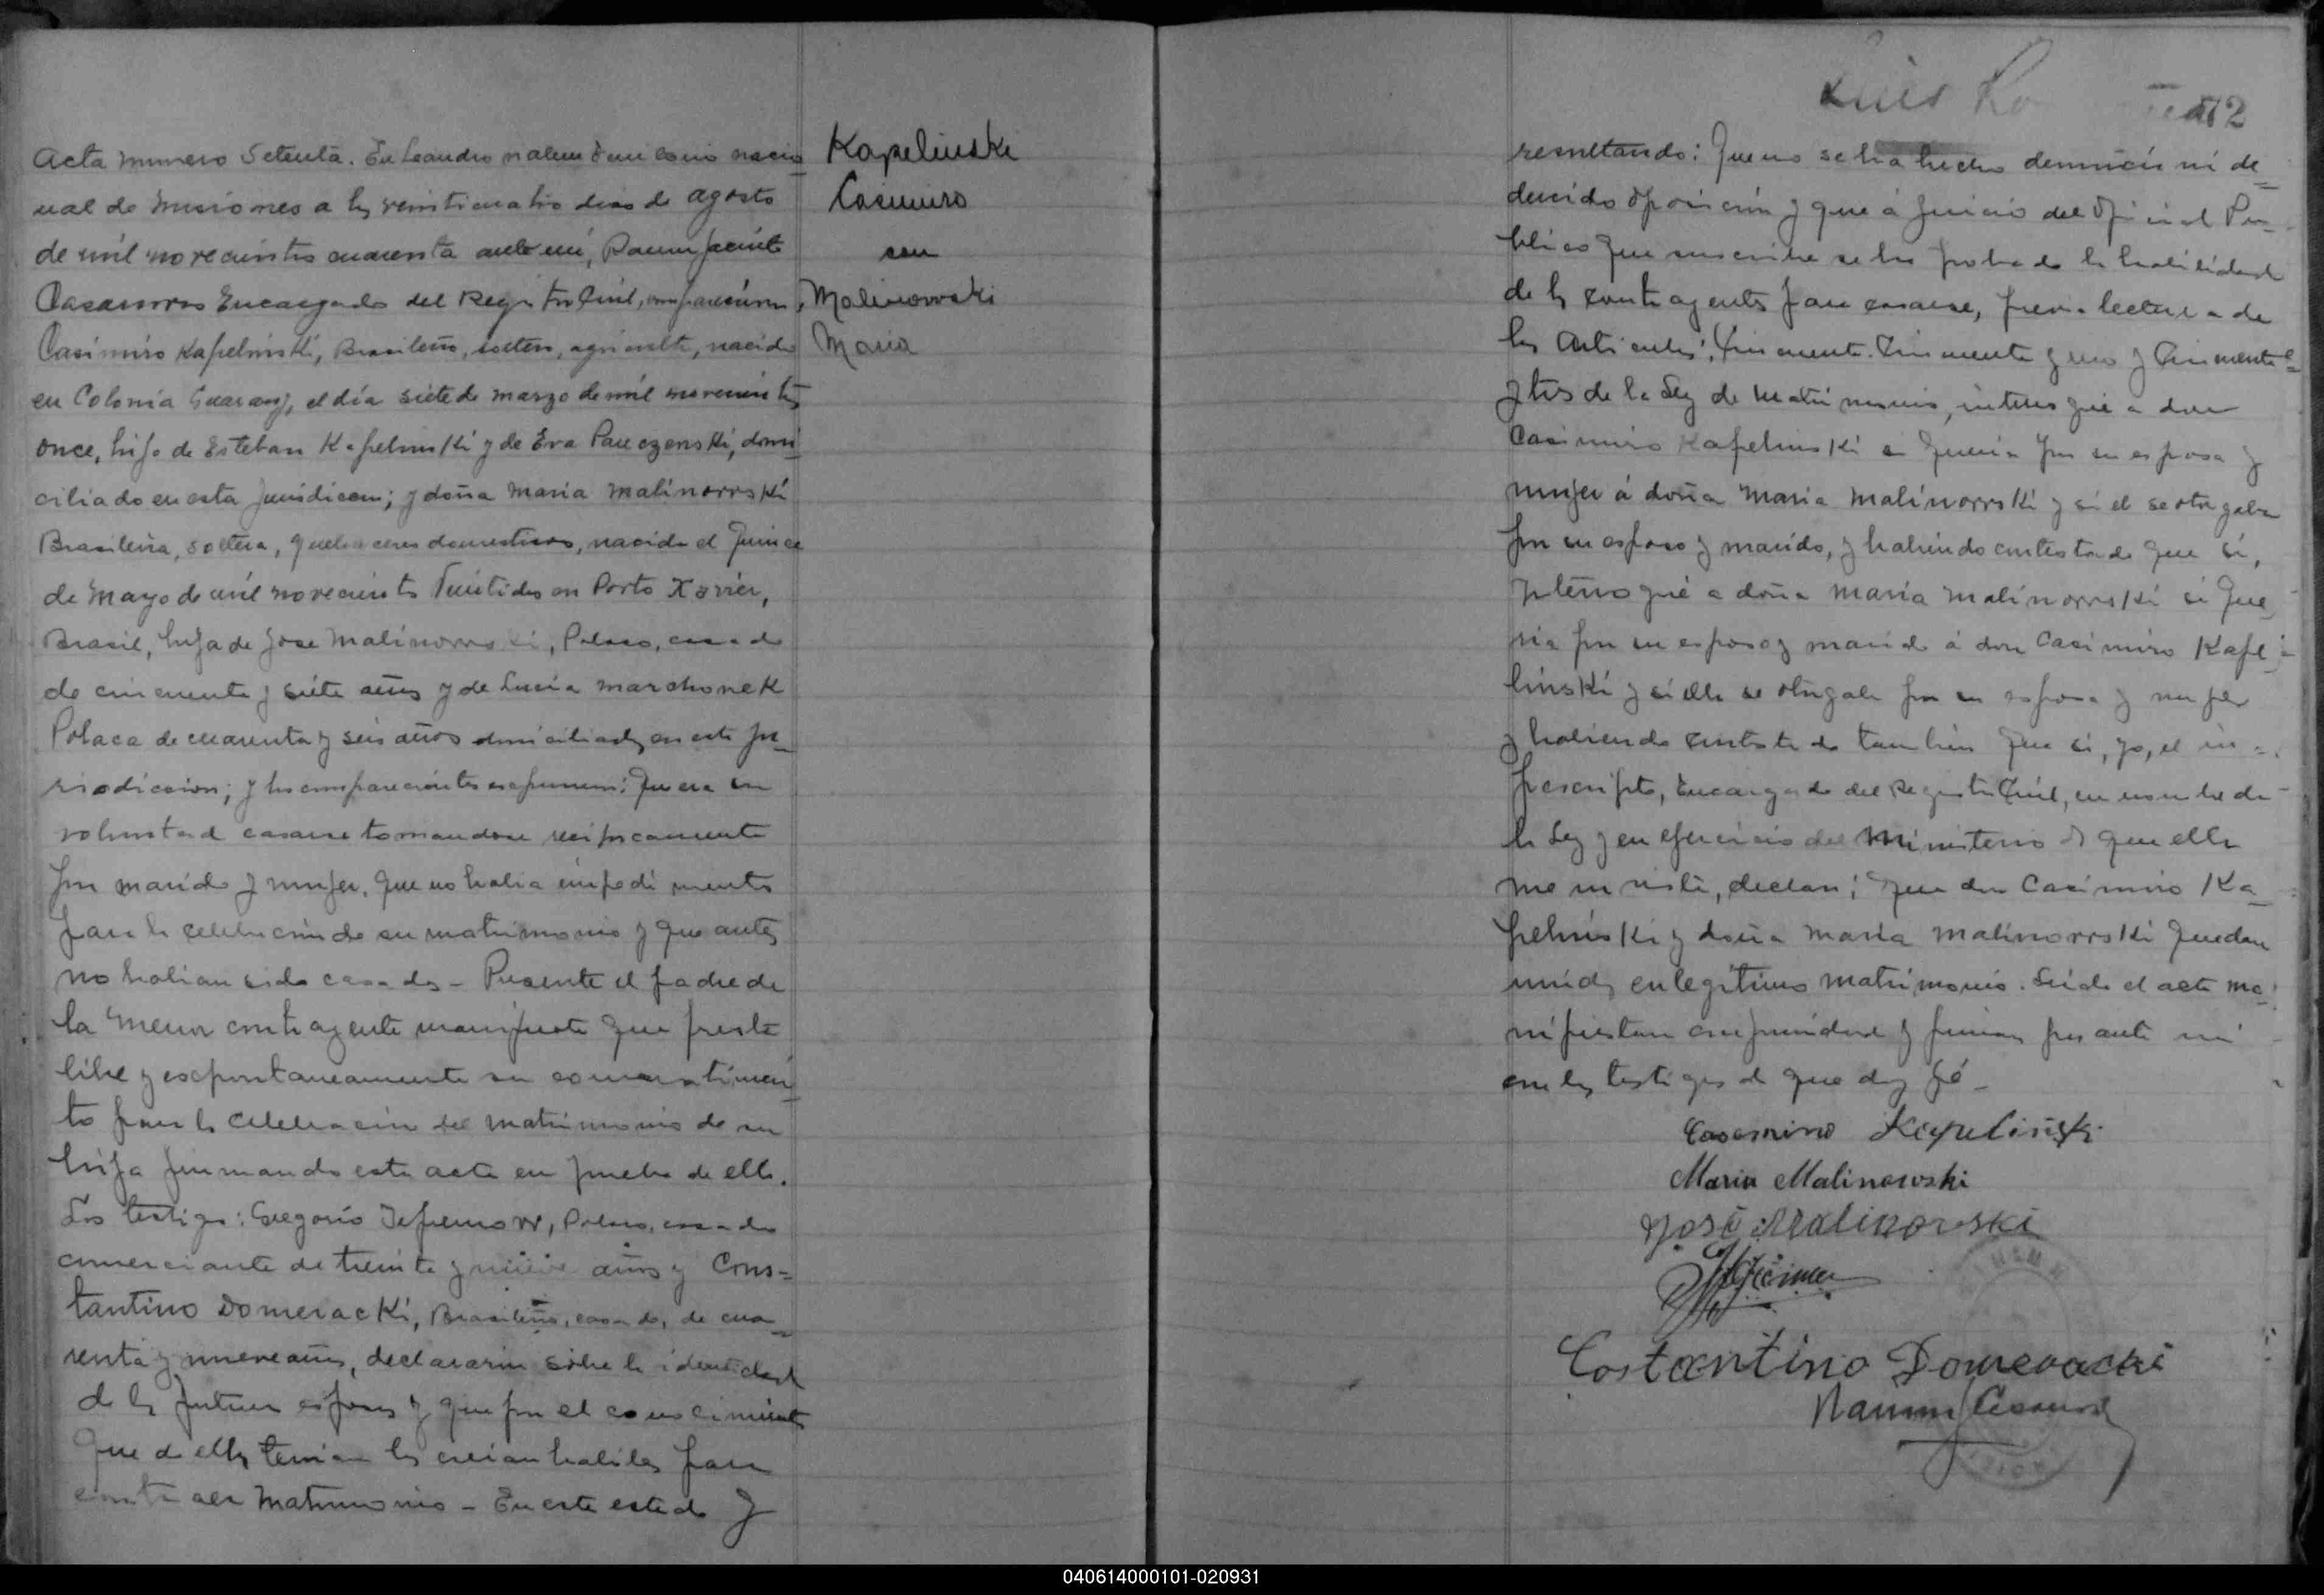 Acta numero Setenta. En Leandro n alem Territorio nacio
nal de Misiones a los veinticuatro dias de agosto
de mil novecientos cuarenta ante mi,
Casanovas Encargado del Registro Civil, comparecieron,
Casimiro Kapelinski, Brasileño, soltero, agricultor, nacido
en Colonia Guarany, el día siete de marzo de mil novecientos
once, hijo de Esteban Kapelinski y de Eva Panczenski, domi
ciliado en esta juridiccion; y doña Maria Malinovvski
Brasileña, soltera, quehaceres domesticos, nacida el quince
de Mayo de mil novecientos Veintidos en Porto Xavier,
Brasil, hija de Jose Malinovvski, Polaco, casado
de cincuenta y siete años y de Lucia Marchonek
Polaca de cuarenta y seis años domiciliados en esta ju_
risdiccion; y los comparecientes expusieron: Que era su
voluntad casarse tomandose reciprocamente
por marido y mujer, que no habia impedimento
para la celebracion de su matrimonio y que antes
no habian sido casados - Presente el padre de
la Menor contrayente manifiesta que presta
libre y espontaneamente su consentimien
to para la celebracion del matrimonio de su
hija firmando esta acta en prueba de ello.
Los testigos: Gregorio Polaco, casado
comerciante de treinta y nueve años y Cons=
tantino Domeracki, Brasileño, casado, de cua_
renta y nueve años, declararon sobre la identidad
de los futuros esposos y que por el conocimiento
que de ellos tenian los creian habiles para
contraer Matrimonio - En este estado y
Kapelinski
Casimiro
con
Malinowski
Maria
Luis
72
resultando: Que no se ha hecho denuncia ni de=
ducido oposición y que á juicio del Oficial Pu_
blico que suscribe se ha probado la habilidad
de los contrayentes para casarse, previa lectura de
los Articulos, Cincuenta. Cincuenta y uno y Cincuenta
y tres de la Ley de Matrimonio, interrogué a don
Casimiro Kapelinski si queria por su esposa y
mujer á doña Maria Malinovvski y si el se otorgaba
por su esposo y marido, y habiendo contestado que si,
Interrogué a doña Maria Malinovvski si que
ria por su esposo y marido á don Casimiro Kape
linski y si ella se otorgaba por su esposa y mujer
y habiendo contestado tambien que si, yo, el in=
frascripto, Encargado del Registro Civil, en nombre de
la Ley y en ejercicio del Ministerio de que ella
me inviste, declaro; que don Casimiro Ka_
pelinski y doña Maria Malinovvski quedan
unidos en legítimo matrimonio. Leida el acta ma
nifiestan conformidad y firman por ante mi
con los testigos de que doy fé_
Casemiro Kapeliński
Maria Malinowski
José Malinovski
Costantino Domeracki
040614000101-020931